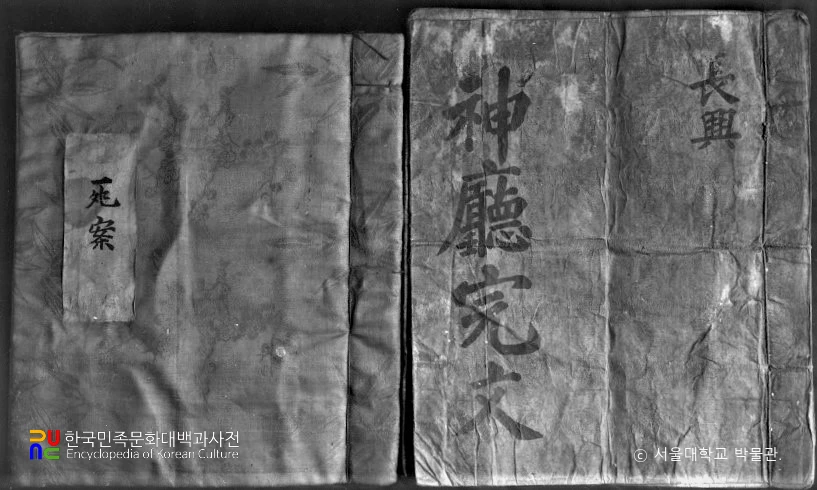 長興
神廳完文
案
한국민족문화대백과사전
Encyclopedia of Korean Culture
ⓒ 서울대학교 박물관.